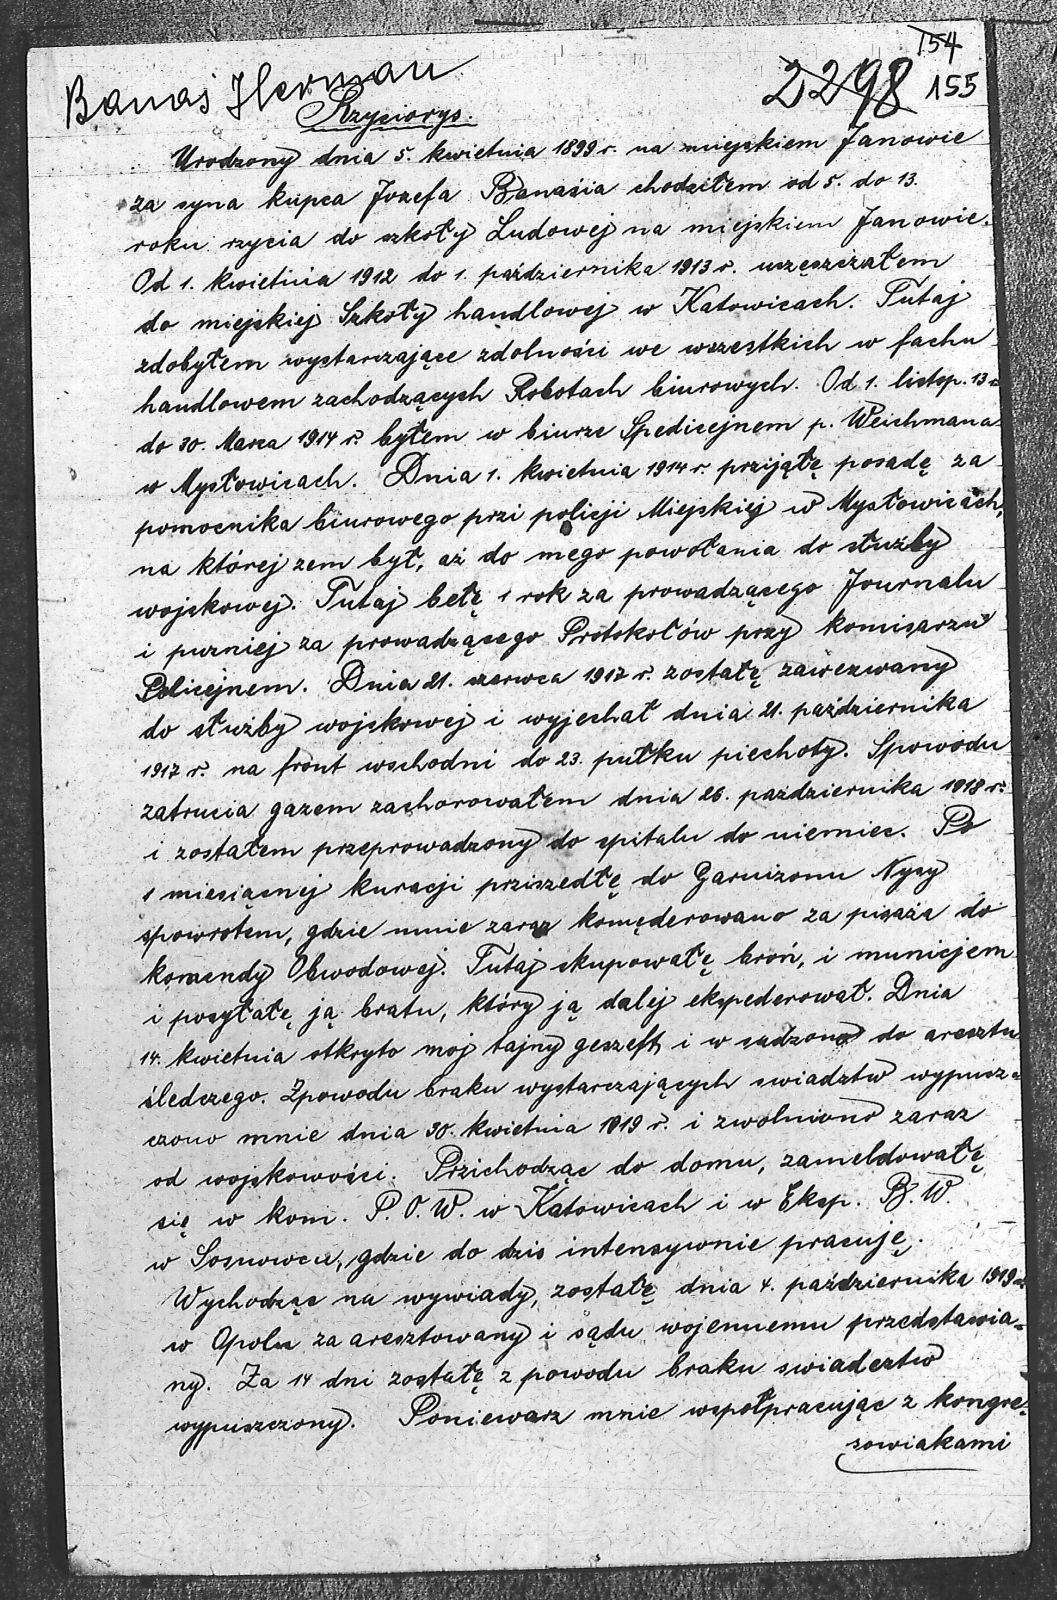 154
Banaś Herman
2298 155
Rzyciorys.
Urodzony dnia 5. kwietnia 1899 r. na miejskiem Janowie
za syna kupca Jozefa Banasia chodziłem od 5. do 13.
roku rzycia do szkoły Ludowej na miejskiem Janowie.
Od 1. kwietnia 1912 do 1. października 1913 r. uczęszczałem
do miejskiej Szkoły handlowej w Katowicach. Tutaj
zdobyłem wystarczające zdolności we wszestkich w fachu
handlowem zachodzących Robotach biurowych. Od 1. listop. 13 r.
do 30. Marca 1914 r. byłem w biurze Spedicejnem p. Weichmana
w Mysłowicach. Dnia 1. kwietnia 1914 r. przijątę posadę za
pomocnika biurowego przi policji Miejskiej w Mysłowicach,
na której zem był, aż do mego powołania do służby
wojskowej. Tutaj betę 1 rok za prowadzącego Journalu
i puzniej za prowadzącego Protokołów przy komisarzu
Policejnem. Dnia 21. czerwca 1917 r. zostatę zawezwany
do służby wojskowej i wyjechał dnia 21. października
1917 r. na front wschodni do 23. pułku piechoty. Spowodu
zatrucia gazem zachorowałem dnia 26. października 1918 r.
i zostałem przeprowadzony do spitalu do niemiec. Po
1 miesiącnej kuracji prziszedtę do Garnizonu Nysy
spowrotem, gdzie mnie zaraz komęderowano za pisaża do
komendy Obwodowej. Tutaj skupowatę broń, i municjem
i posytatę ją bratu, który ją dalej ekspederował. Dnia
14. kwietnia otkryto moj tajny geszeft i w sadzono do aresztu
śledczego. Zpowodu braku wystarczających swiadztw wypusz=
czono mnie dnia 30. kwietnia 1919 r. i zwolniono zaraz
od wojskowości. Przichodząc do domu, zameldowatę
się w kom. P.O.W. w Katowicach i w Eksp. B.W.
w Sosnowcu, gdzie do dzis intensywnie pracuję.
Wychodząc na wywiady, zostatę dnia 4. października 1919 r.
w Opolu za aresztowany i sądu wojennemu przedstawia=
ny. Za 14 dni zostatę z powodu braku swiadeztw
wypuszczony. Poniewarz mnie współpracując z kongre=
sowiakami